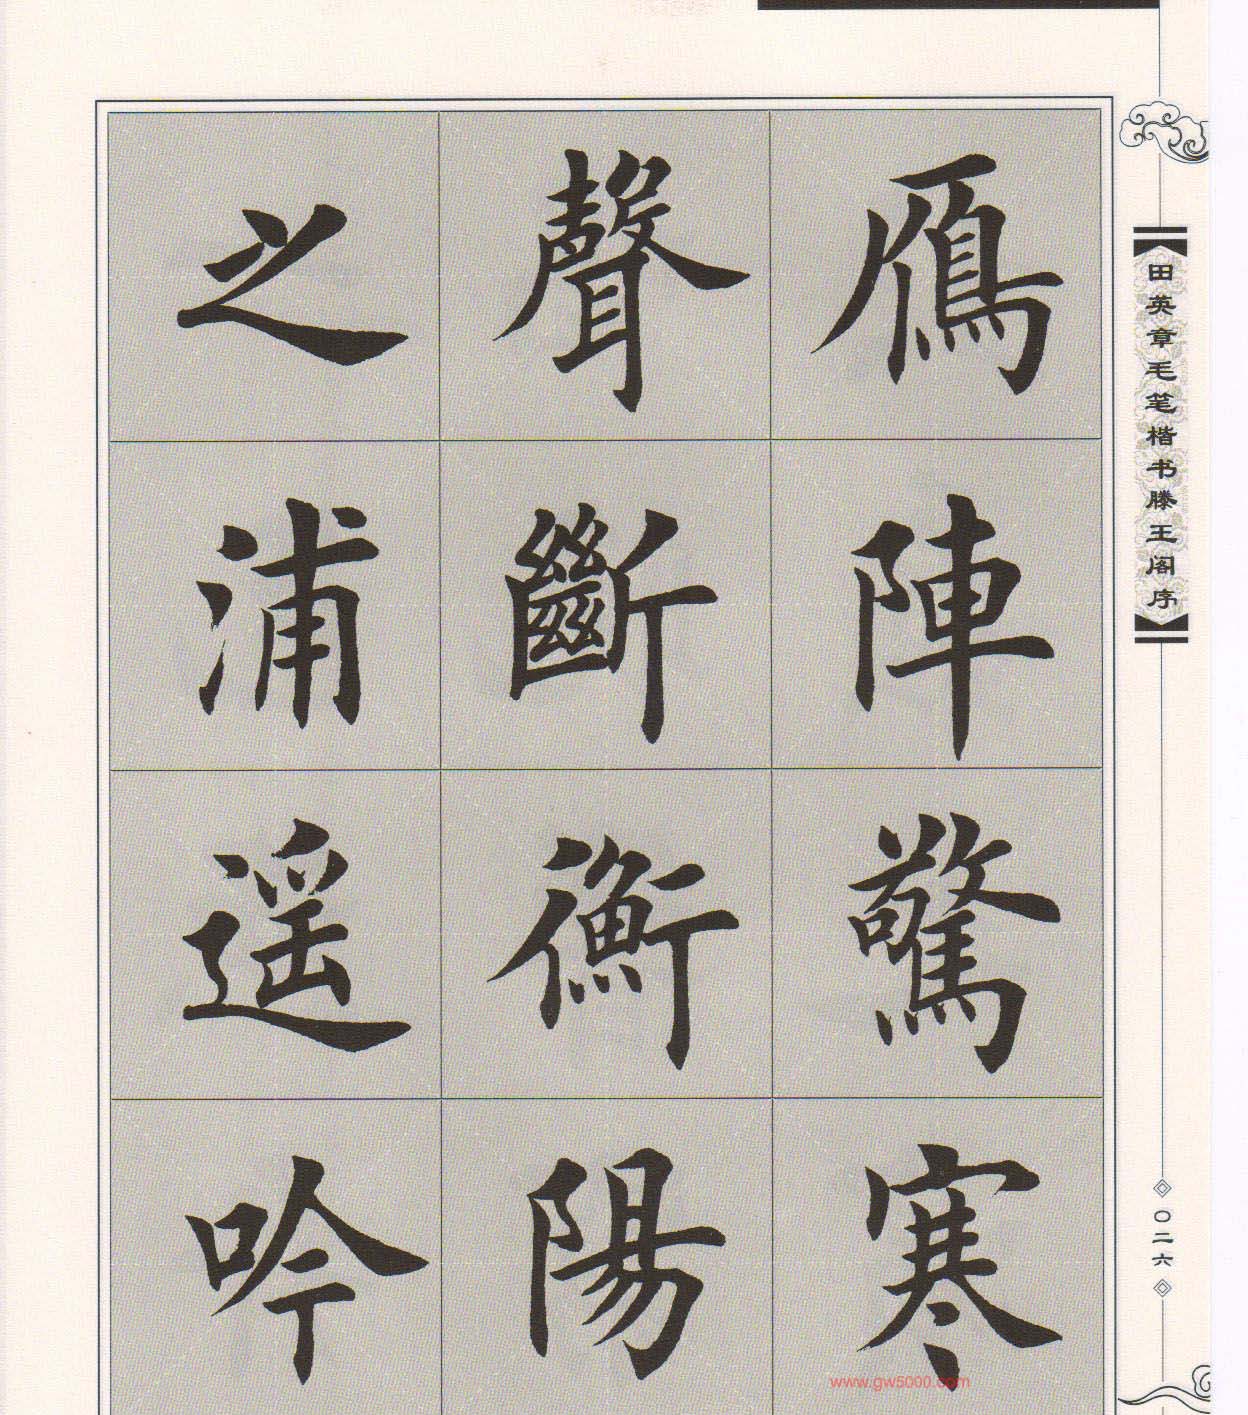 鴈陣驚寒
聲斷衡陽
之浦遥吟
田英章毛笔楷书滕王阁序
〇二六
www.gw5000.com